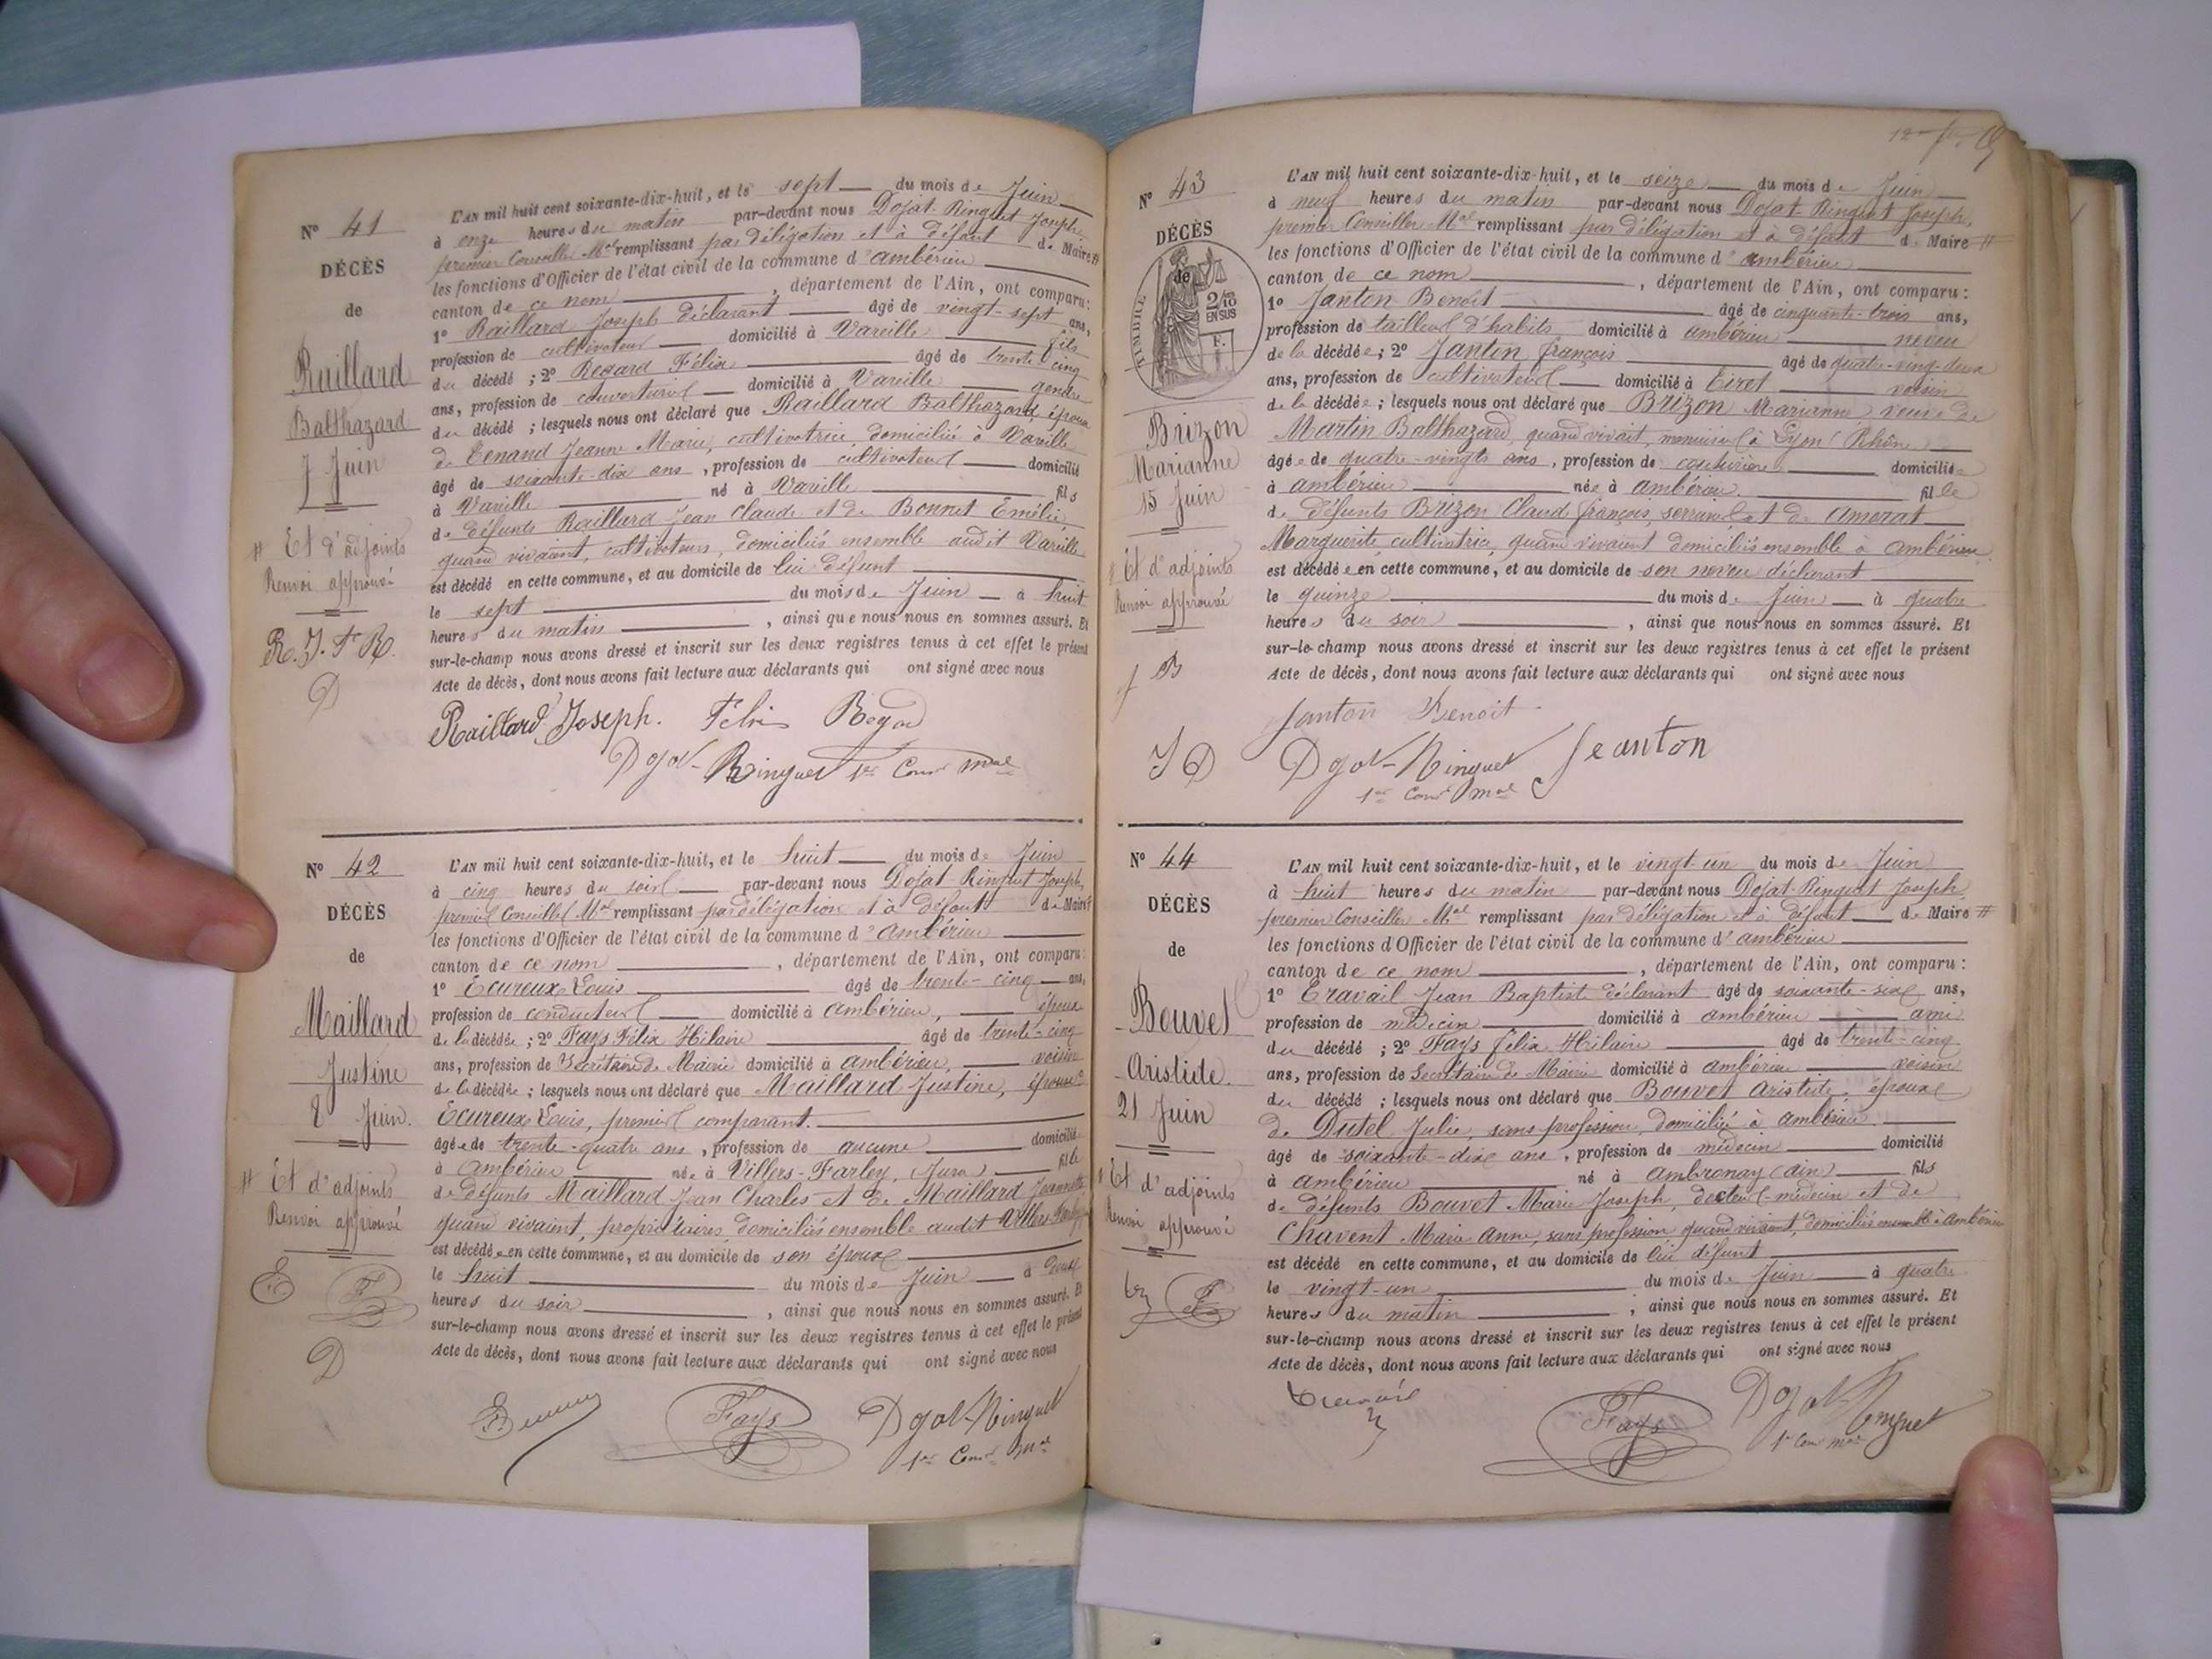 N° 41
DÉCÈS
de
Raillard
Balthazard
7 Juin
# Et d'adjoints
Renvoi approuvé
R. J. F. R.
D
L'AN mil huit cent soixante-dix-huit, et le sept du mois de Juin
à onze heures du matin par-devant nous Dojat-Ringuet Joseph
premier Conseiller Mal remplissant par délégation et à défaut de Maire #
les fonctions d'Officier de l'état civil de la commune d'ambérieu
canton de ce nom, département de l'Ain, ont comparu:
1° Raillard Joseph déclarant âgé de vingt-sept ans,
profession de cultivateur domicilié à Vareille fils
du décédé ; 2° Regard Félix âgé de trente cinq
ans, profession de domicilié à Vareille gendre
du décédé ; lesquels nous ont déclaré que Raillard Balthazard, époux
de Tenand Jeanne Marie, cultivatrice, domiciliée à Vareille
âgé de soixante-dix ans, profession de cultivateur domicilié
à Vareille né à Vareille fils
de défunts Raillard Jean Claude et de Bonnet Emélie,
quand vivaient, cultivateurs, domiciliés ensemble audit Vareille
est décédé en cette commune, et au domicile de lui défunt
le sept du mois de Juin à huit
heures du matin, ainsi que nous nous en sommes assuré. Et
sur-le-champ nous avons dressé et inscrit sur les deux registres tenus à cet effet le présent
Acte de décès, dont nous avons fait lecture aux déclarants qui ont signé avec nous
Raillard Joseph. Félix Regard
Dojat-Ringuet 1er Conser mal
N° 42
DÉCÈS
de
Maillard
Justine
8 Juin.
# Et d'adjoints
Renvoi approuvé
E F
D
L'AN mil huit cent soixante-dix-huit, et le huit du mois de Juin
à cinq heures du soir par-devant nous Dojat-Ringuet Joseph,
premier Conseiller Mal remplissant par délégation et à défaut de Maire #
les fonctions d'Officier de l'état civil de la commune d'ambérieu
canton de ce nom, département de l'Ain, ont comparu:
1° Ecureux Louis âgé de trente-cinq ans,
profession de conducteur domicilié à ambérieu, époux
de la décédée ; 2° Fays Félix Hilaire âgé de trente-cinq
ans, profession de Secrétaire de Mairie domicilié à ambérieu, voisin
de la décédée ; lesquels nous ont déclaré que Maillard Justine, épouse
Ecureux Louis, premier comparant.
âgée de trente-quatre ans, profession de aucune domiciliée
à ambérieu née à Villers-Farley, (Jura) fille
de défunts Maillard Jean Charles et de Maillard Jeannette
quand vivaient, propriétaires, domiciliés ensemble audit Villers-Farley
est décédée en cette commune, et au domicile de son époux
le huit du mois de Juin à deux
heures du soir, ainsi que nous nous en sommes assuré. Et
sur-le-champ nous avons dressé et inscrit sur les deux registres tenus à cet effet le présent
Acte de décès, dont nous avons fait lecture aux déclarants qui ont signé avec nous
Fays Dojat-Ringuet
1er Conser mal
N° 43
DÉCÈS
de
TIMBRE
2/10
EN SUS
F.
Brizon
Marianne
15 Juin
# Et d'adjoints
Renvoi approuvé
J B
J D
L'AN mil huit cent soixante-dix-huit, et le seize du mois de Juin
à neuf heures du matin par-devant nous Dojat-Ringuet Joseph,
premier Conseiller Mal remplissant par délégation et à défaut de Maire #
les fonctions d'Officier de l'état civil de la commune d'ambérieu
canton de ce nom, département de l'Ain, ont comparu:
1° Janton Benoît âgé de cinquante-trois ans,
profession de tailleur d'habits domicilié à ambérieu neveu
de la décédée ; 2° Janton françois âgé de quatre-ving-deux
ans, profession de cultivateur domicilié à Tiret voisin
de la décédée ; lesquels nous ont déclaré que Brizon Marianne veuve de
Martin Balthazard, quand vivait, menuisier à Lyon (Rhône)
âgée de quatre-vingts ans, profession de couturière domiciliée
à ambérieu née à ambérieu fille
de défunts Brizon Claude françois, serrurier et de Amorat
Marguerite cultivatrice, quand vivaient domiciliés ensemble à Ambérieu
est décédée en cette commune, et au domicile de son neveu déclarant
le quinze du mois de Juin à quatre
heures du soir, ainsi que nous nous en sommes assuré. Et
sur-le-champ nous avons dressé et inscrit sur les deux registres tenus à cet effet le présent
Acte de décès, dont nous avons fait lecture aux déclarants qui ont signé avec nous
Janton Benoit
Dojat-Ringuet Jeanton
1er Conser mal
N° 44
DÉCÈS
de
Bouvet
Aristide.
21 Juin
# Et d'adjoints
Renvoi approuvé
L'AN mil huit cent soixante-dix-huit, et le vingt-un du mois de Juin
à huit heures du matin par-devant nous Dojat-Ringuet Joseph
premier Conseiller Mal remplissant par délégation et à défaut de Maire #
les fonctions d'Officier de l'état civil de la commune d'ambérieu
canton de ce nom, département de l'Ain, ont comparu:
1° Travail Jean Baptiste déclarant âgé de soixante-six ans,
profession de médecin domicilié à ambérieu ami
du décédé ; 2° Fays félix Hilaire âgé de trente-cinq
ans, profession de Secrétaire de Mairie domicilié à ambérieu voisin
du décédé ; lesquels nous ont déclaré que Bouvet Aristide, époux
de Dutel Julie, sans profession, domiciliée à ambérieu.
âgé de soixante-dix ans, profession de médecin domicilié
à ambérieu né à ambronay (ain) fils
de défunts Bouvet Marie Joseph, docteur-médecin et de
Chavent Marie Anne, sans profession, quand vivaient, domiciliés ensemble à Ambérieu
est décédé en cette commune, et au domicile de lui défunt
le vingt-un du mois de Juin à quatre
heures du matin, ainsi que nous nous en sommes assuré. Et
sur-le-champ nous avons dressé et inscrit sur les deux registres tenus à cet effet le présent
Acte de décès, dont nous avons fait lecture aux déclarants qui ont signé avec nous
Travail Fays Dojat-Ringuet
1er Conser mal